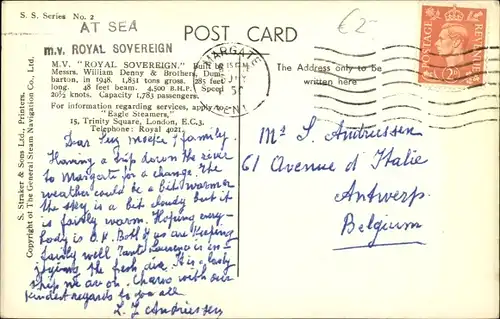 S. S. Series No. 2
AT SEA
m.v. ROYAL SOVEREIGN
POST CARD
€2-
M.V. "ROYAL SOVEREIGN." Built by
Messrs. William Denny & Brothers, Dum-
barton, in 1948. 1,851 tons gross. 285 feet
long. 48 feet beam. 4,500 B.H.P. Speed
20½ knots. Capacity 1,783 passengers.
For information regarding services, apply to:—
"Eagle Steamers,"
15, Trinity Square, London, E.C.3.
Telephone: Royal 4021.
S. Straker & Sons Ltd., Printers.
Copyright of The General Steam Navigation Co., Ltd.
MARGATE
KENT
The Address only to be
written here
POSTAGE
REVENUE
2D
Dear & family.
Having a trip down the river
to Margate for a change. The
weather could be a bit warmer
the sky is a bit cloudy but it
is fairly warm. Hoping every-
body is O.K. Both of us are keeping
fairly well. Tante Laurence is en-
joying the fresh air. It is a lovely
ship we are on. Cheerio with our
kindest regards to you all.
L. L. Andriessen
Mr S. Andriessen
61 Avenue d'Italie
Antwerp.
Belgium